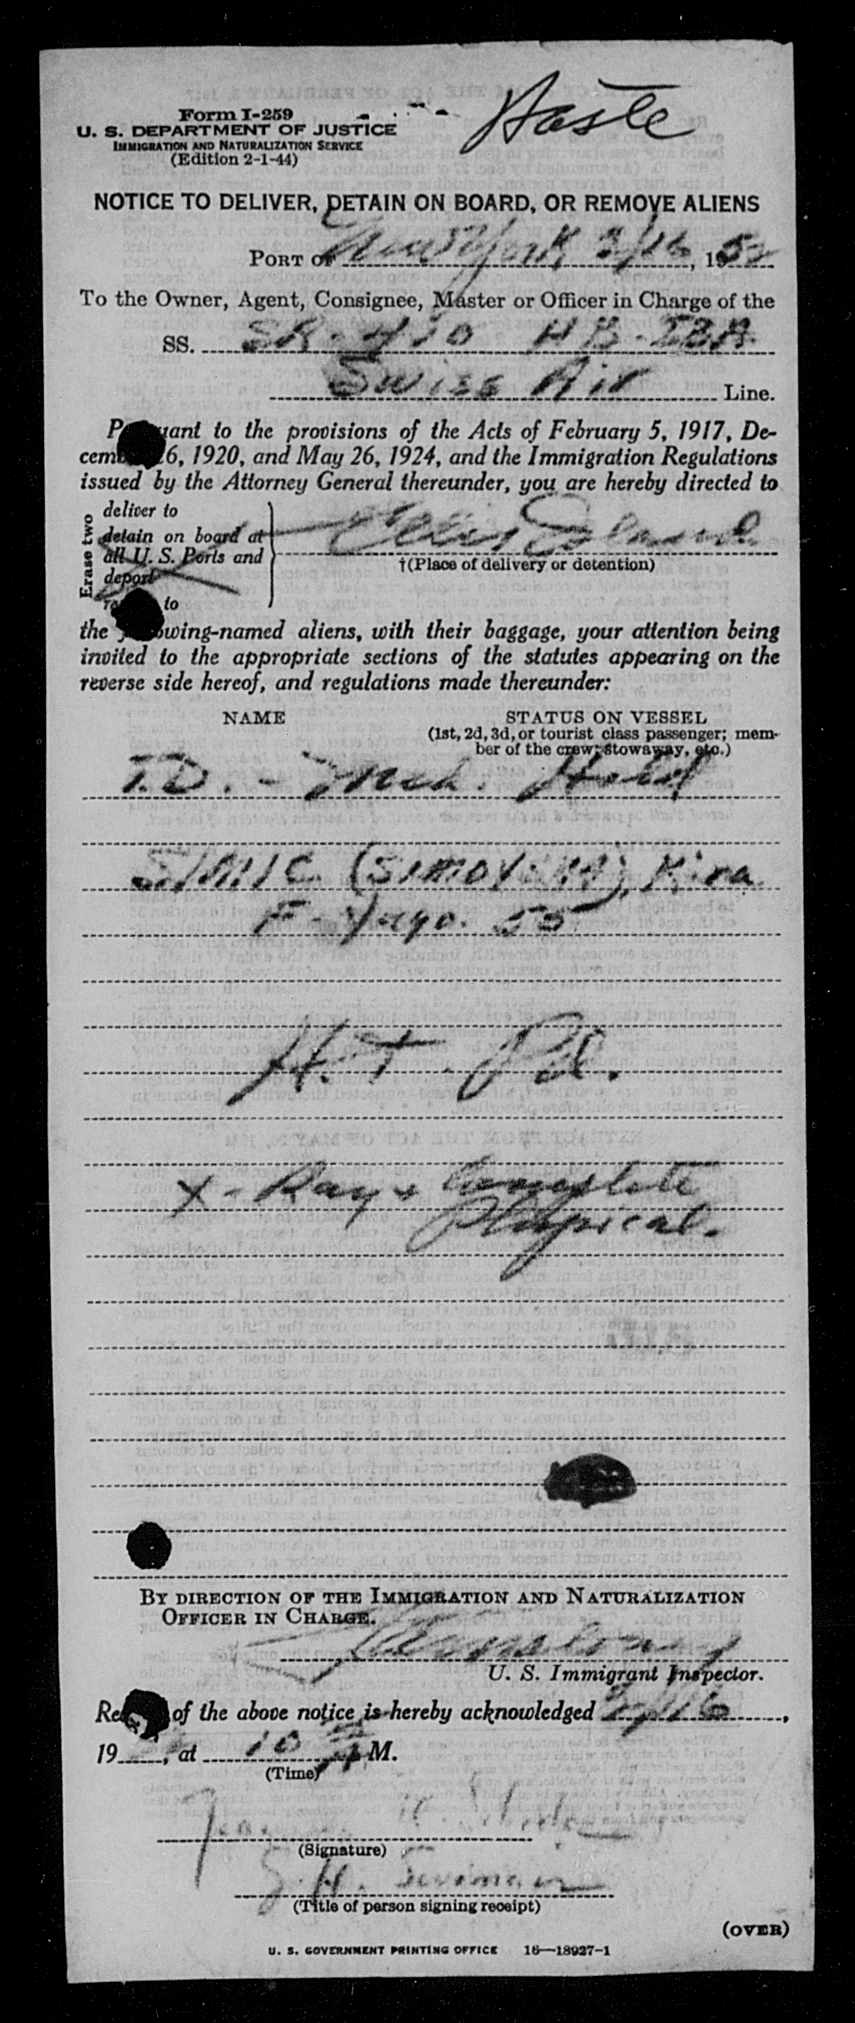 Form I-259
Haste
U. S. DEPARTMENT OF JUSTICE
IMMIGRATION AND NATURALIZATION SERVICE
(Edition 2-1-44)
NOTICE TO DELIVER, DETAIN ON BOARD, OR REMOVE ALIENS
PORT OF New York 2/16, 1952
To the Owner, Agent, Consignee, Master or Officer in Charge of the
SS. SR-410 HB-IBA
Swiss Air Line.
Pursuant to the provisions of the Acts of February 5, 1917, De-
cember 26, 1920, and May 26, 1924, and the Immigration Regulations
issued by the Attorney General thereunder, you are hereby directed to
Erase two
deliver to
detain on board at
all U. S. Ports and
deport
to
Ellis Island
†(Place of delivery or detention)
the following-named aliens, with their baggage, your attention being
invited to the appropriate sections of the statutes appearing on the
reverse side hereof, and regulations made thereunder:
NAME STATUS ON VESSEL
(1st, 2d, 3d, or tourist class passenger; mem-
ber of the crew; stowaway, etc.)
T.D. - Med. Hold
SIMIC Kira
F - Yugo. 55
H.T. Pd.
X-Ray & Complete
Physical.
BY DIRECTION OF THE IMMIGRATION AND NATURALIZATION
OFFICER IN CHARGE.
U. S. Immigrant Inspector.
of the above notice is hereby acknowledged 2/16,
19 , at 10 M.
(Time)
(Signature)
(Title of person signing receipt)
(OVER)
U. S. GOVERNMENT PRINTING OFFICE 16—18927-1